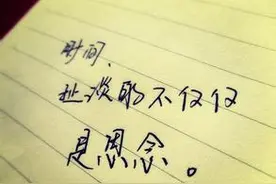 时间,
扯淡的不仅仅
是思念。